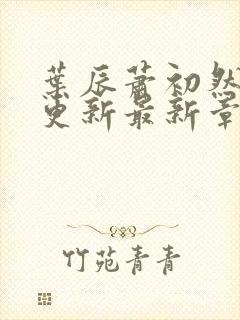 葉辰蕭初然
更新最新章
竹苑青青